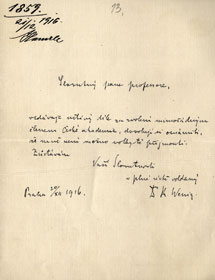 1859.
21/12 1916.
13.
Slovutný pane professore,
vzdávaje uctivý dík za zvolení mimořádným
členem České akademie, dovoluji si oznámiti,
že není mi možno volby té přijmouti.
Zůstávám
Vaší Slovutnosti
v plné úctě oddaný
Dr K. Wenig
Praha 20/XII 1916.